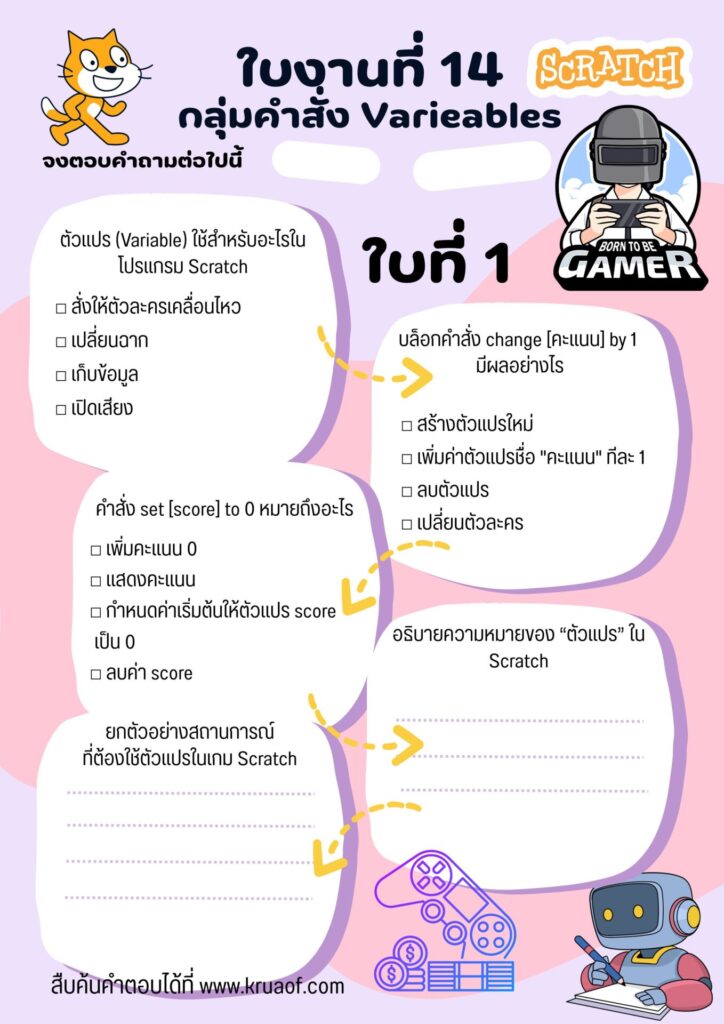 ใบงานที่ 14
SCRATCH
กลุ่มคำสั่ง Varieables
จงตอบคำถามต่อไปนี้
ใบที่ 1
BORN TO BE
GAMER
ตัวแปร (Variable) ใช้สำหรับอะไรใน
โปรแกรม Scratch
□ สั่งให้ตัวละครเคลื่อนไหว
□ เปลี่ยนฉาก
□ เก็บข้อมูล
□ เปิดเสียง
บล็อกคำสั่ง change [คะแนน] by 1
มีผลอย่างไร
□ สร้างตัวแปรใหม่
□ เพิ่มค่าตัวแปรชื่อ "คะแนน" ทีละ 1
□ ลบตัวแปร
□ เปลี่ยนตัวละคร
คำสั่ง set [score] to 0 หมายถึงอะไร
□ เพิ่มคะแนน 0
□ แสดงคะแนน
□ กำหนดค่าเริ่มต้นให้ตัวแปร score
เป็น 0
□ ลบค่า score
อธิบายความหมายของ “ตัวแปร” ใน
Scratch
ยกตัวอย่างสถานการณ์
ที่ต้องใช้ตัวแปรในเกม Scratch
สืบค้นคำตอบได้ที่ www.kruaof.com